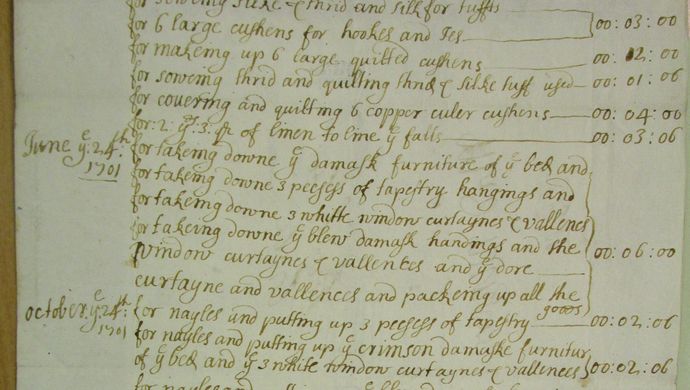 for soweing silke & thrid and silk for tuffts
for 6 large cushens for hookes and Ies 00:03:00
for makeing up 6 large quilted cushens 00:02:00
for soweing thrid and quilting thrid & silke tuff used 00:01:06
for covering and quilting 6 copper culer cushens 00:04:00
for: 2: yds: 3: qr of linen to line ye falls 00:03:06
June ye: 24th: 1701 for takeing downe ye damask furniture of ye bed and
for takeing downe 3 peeses of tapestry hangings and
for takeing downe 3 whitte window curtaynes & vallences
for takeing downe ye blew damask handings and the
window curtaynes & vallentes and ye dore 00:06:00
curtayne and vallences and packeing up all the goods
october: ye: 24th 1701 for nayles and putting up 3 peeses of tapestry 00:02:06
for nayles and putting up ye crimson damaske furnitur
of ye bed and ye 3 white window curtaynes & vallences 00:02:06
for nayles and